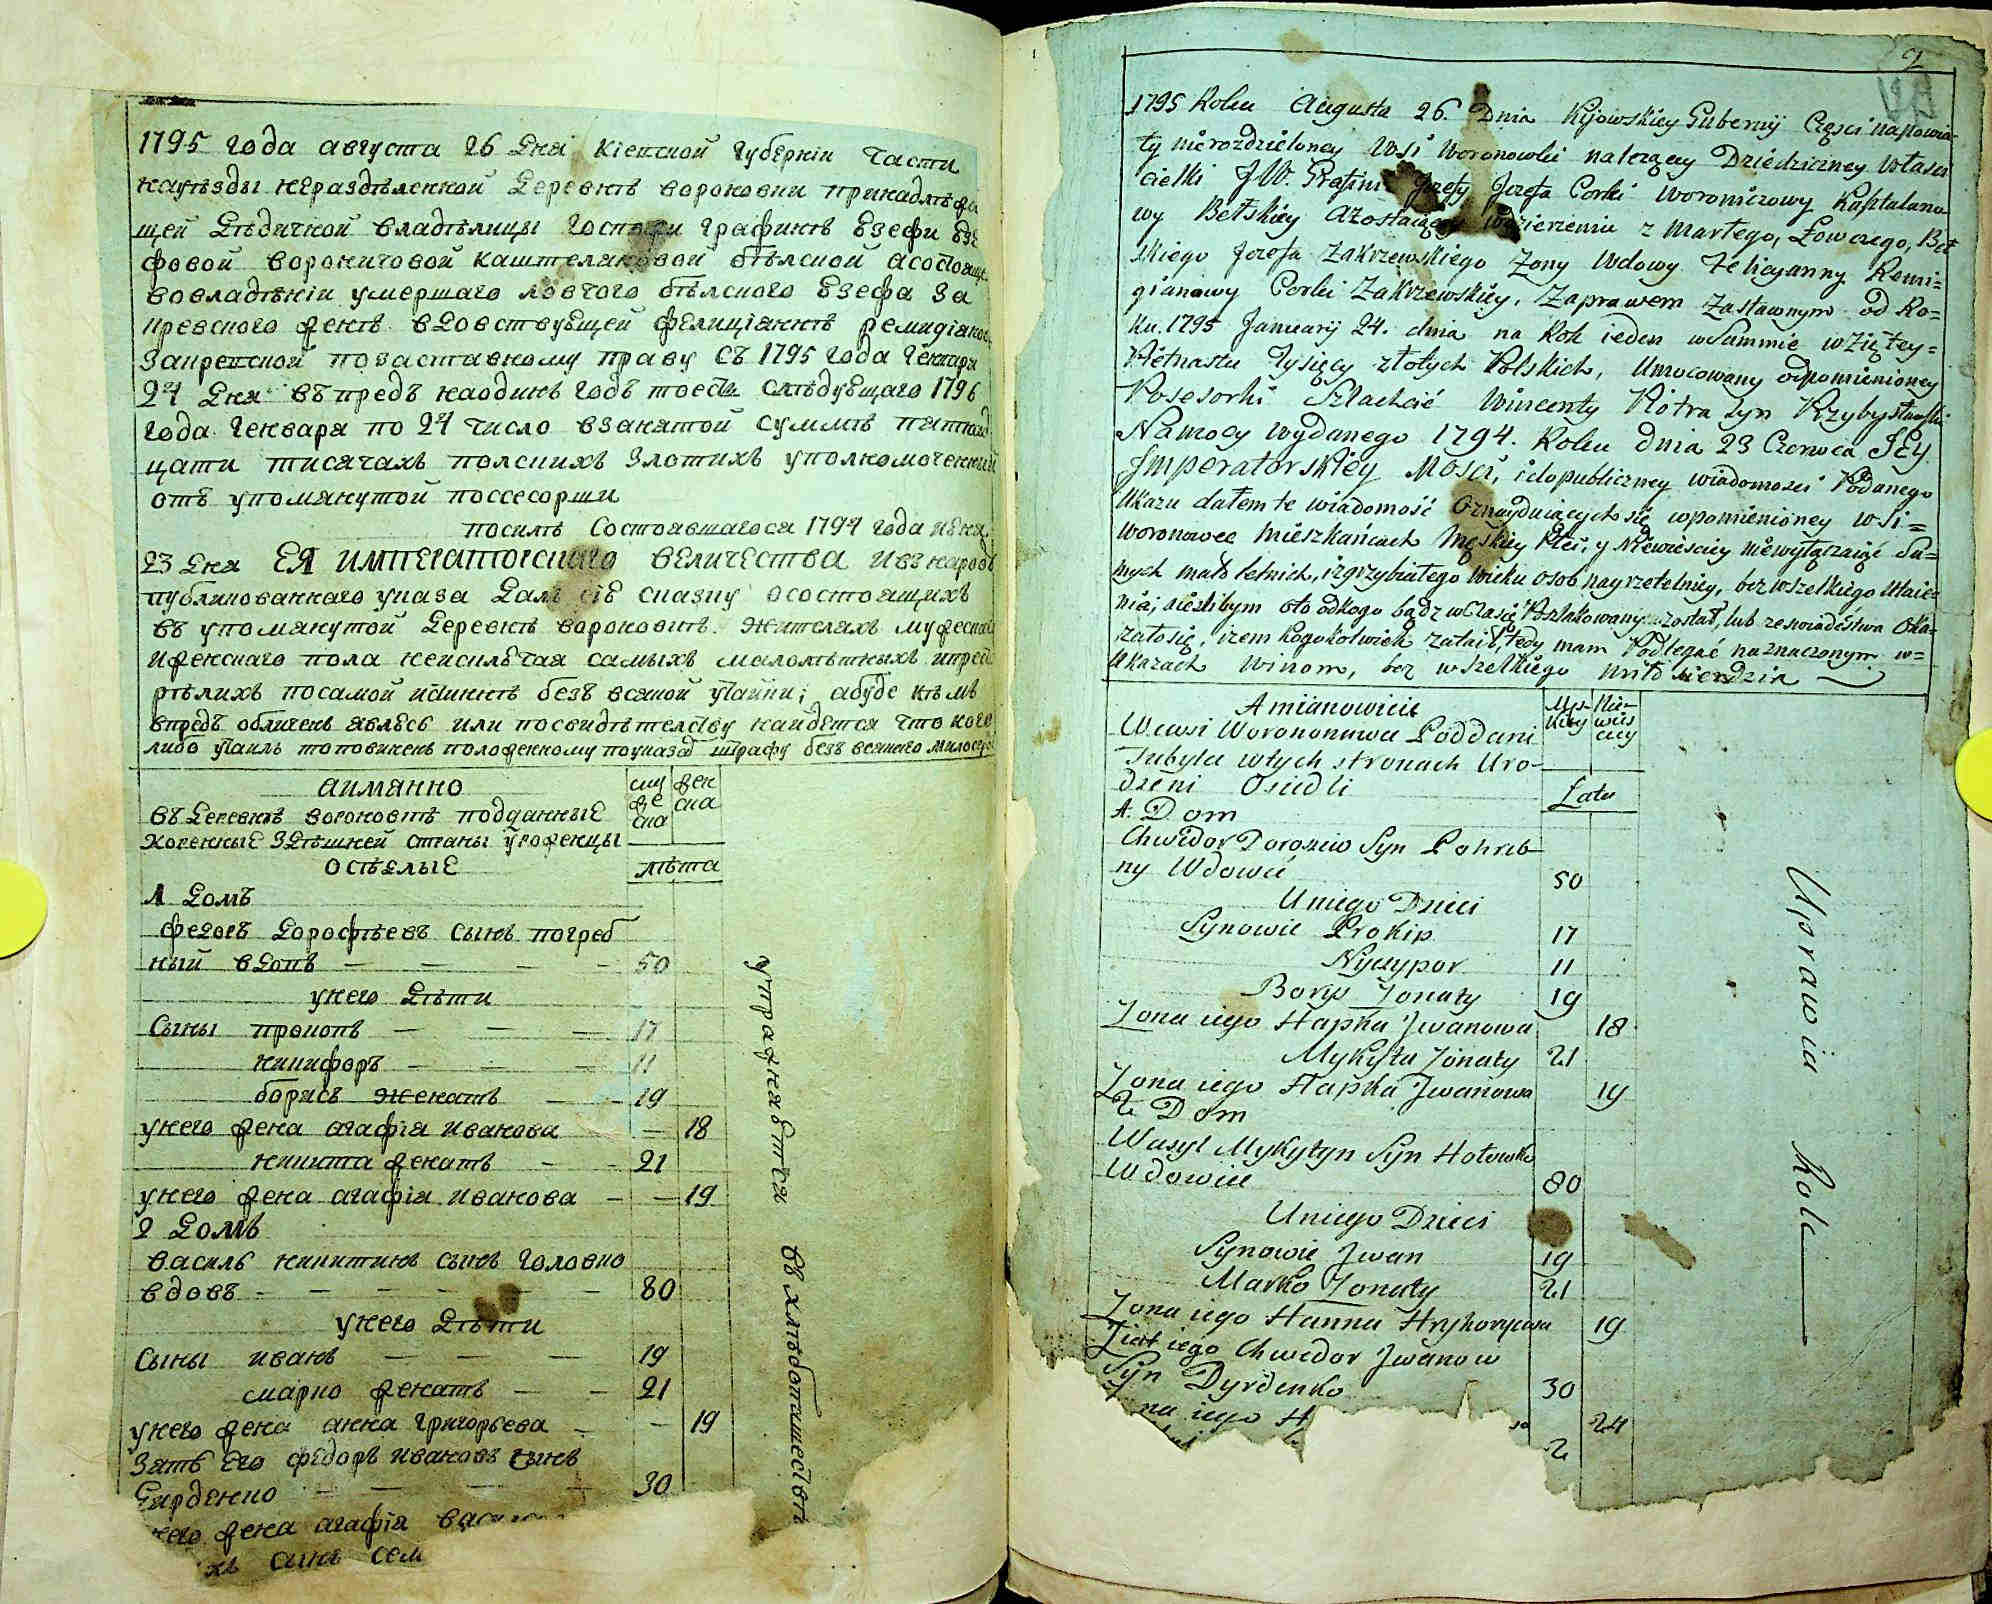 1795 года августа 26 дня кіевской губерніи части
науѣзды нераздѣленной деревнѣ вороновки принадлѣжа
щей дѣдичной владѣлицы госпожи графинѣ Ѣзефи Ѣзе
фовой вороничовой каштеляновой бѣлской асостоящ
вовладѣніи умершаго ловчого бѣлского Ѣзефа За
кревского женѣ вдовствующей фелиціяннѣ ремидіянов
Закревской позаставному праву съ 1795 года Генваря
24 дня впредъ наодинъ годъ тоесть слѣдующаго 1796
года Генваря по 24 число взанятой суммѣ пятнад
цати тисячахъ полскихъ злотихъ уполномоченний
отъ упомянутой поссесорши
посилѣ состоявшагося 1794 года июня
23 дня ЕЯ ИМПЕРАТОРСКАГО величества ивъ народъ
публикованнаго указа далъ сію сказку осостоящихъ
въ упомянутой деревнѣ вороновкѣ жителяхъ мужеска
иженскаго пола неисключая самыхъ малолѣтныхъ ипрест
рѣлихъ посамой истиннѣ безъ всякой утайки; абуде кѣмъ
впредъ обличенъ явлюсь или посвидѣтелству найдется что кого
либо утаилъ топовиненъ положенному поуказа штрафу безъ всякого милосер
аиманно
муже ска
жен ска
въ деревнѣ вороновкѣ подданные
коренные здѣшней страны урожденцы
оседлые
лѣта
1 домъ
федоръ дорофѣевъ сынъ погреб
ный вдовъ — 50
унего дѣти
Сыны прокопъ — 17
никифоръ — 11
борисъ женатъ — 19
унего жена агафія иванова — 18
никита женатъ — 21
унего жена агафія иванова — 19
2 домъ
василь никитинъ сынъ головко
вдовъ — 80
унего дѣти
Сыны иванъ — 19
марко женатъ — 21
унего жена анна григорьева — 19
Зять его федоръ ивановъ сынъ
дирденко — 30
него жена агафія
хъ сынъ сем
упражняются въ хлѣбопашествѣ
2
1795 Roku Augusta 26. Dnia Kijowskiey Gubernij Częsci napowia
ty nierozdzieloney Wsi Woronowki należący Dziedziczney własci
cielki J.W. Grafini Jozefy Jozefa Corki Woroniczowy Kasztelano
wy Bełskiey Azostaiącey wdzierzeniu z martego, Łowczego, Beł
skiego Jozefa Zakrzewskiego Żony Wdowy Felicyanny Remi=
gianowy Corki Zakrzewskiey, Zaprawem Zastawnym od Ro=
ku. 1795 Januarij 24. dnia na Rok ieden wSummie wzięłey=
Piętnastu Tysięcy złotych Polskich, Umocowany odpomienioney
Posesorki Szlachcić Wincenty Piotra syn Przybysławski
Namocy wydanego 1794. Roku dnia 23 Czerwca JEY
Jmperatorskiey Mosci, idopubliczney wiadomosci Podanego
Ukazu dałem te wiadomość oznayduiących się wpomienioney wsi=
Woronowce mieszkańcach Męskiey Płci, y Niewieściey niewyłączaiąc Sa=
mych mało letnich, izgrzybiałego wieku osob nayrzetelniey, bez wszelkiego Utaie=
nia; ieżelibym oto odkogo bądz wczasie Poszlakowanym został, lub zeswiadectwa Oka=
załosię, iżem kogokolwiek zataił, tedy mam Podlegać naznaczonym w=
Ukazach winom, bez wszelkiego miło sierdzia
Amianowicie
Męs- kiey
Nie- wies ciey
Wewsi Woronowce Poddani
Tubyla wtych stronach Uro-
dzeni Osiedli
Lata
1. Dom
Chwedor Doroziow Syn Pohreb-
ny Wdowiec 50
Uniego Dzieci
Synowie Prokip 17
Nyczypor 11
Borys Żonaty 19
Żona iego Hapka Jwanowa 18
Mykyta Żonaty 21
Żona iego Hapka Jwanowa 19
2. Dom
Wasyl Mykytyn Syn Hołowko
Wdowiec 80
Uniego Dzieci
Synowie Jwan 19
Marko Żonaty 21
Żona iego Hanna Hryhorywa 19
Ziat iego Chwedor Jwanow
Syn Dyrdenko 30
na iego H 24
2
Uprawia Rolę